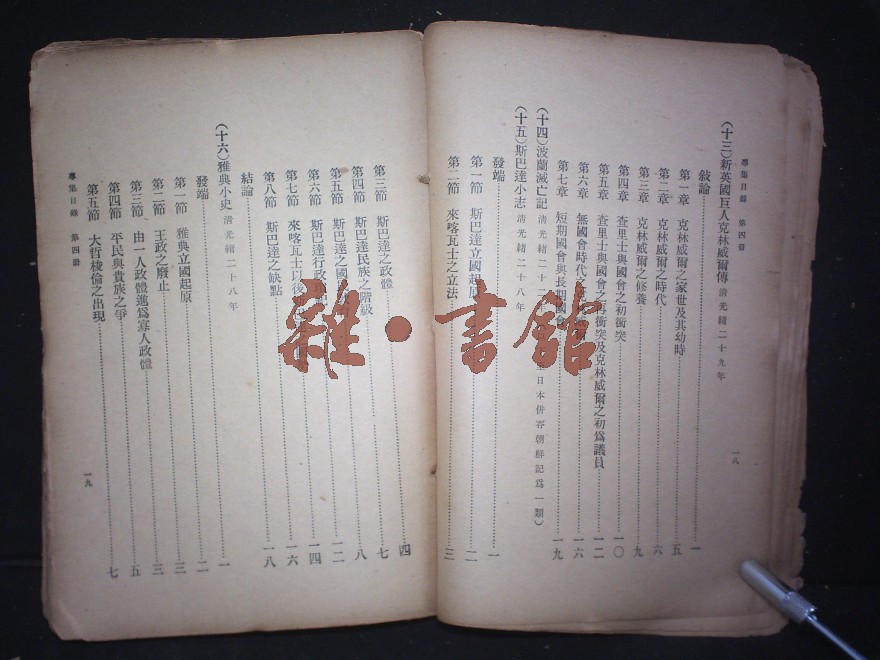 專集目錄 第四册
(十三)新英國巨人克林威爾傳 清光緒二十九年
敍論 一
第一章 克林威爾之家世及其幼時 五
第二章 克林威爾之時代 六
第三章 克林威爾之修養 九
第四章 查里士與國會之初衝突 一〇
第五章 查里士與國會之再衝突及克林威爾之初為議員 一二
第六章 無國會時代 一六
第七章 短期國會與長期國會 一九
(十四)波蘭滅亡記 清光緒二十二 日本併吞朝鮮記為一類)
(十五)斯巴達小志 清光緒二十八年
發端 一
第一節 斯巴達立國起原 二
第二節 來喀瓦士之立法 三
一八
第三節 斯巴達之政體 四
第四節 斯巴達民族之階級 七
第五節 斯巴達之國 八
第六節 斯巴達行政 一二
第七節 來喀瓦士以後 一四
第八節 斯巴達之缺點 一六
結論 一八
(十六)雅典小史 清光緒二十八年
發端 一
第一節 雅典立國起原 二
第二節 王政之廢止 三
第三節 由一人政體進為寡人政體 三
第四節 平民與貴族之爭 五
第五節 大哲梭倫之出現 七
專集目錄 第四册
一九
雜·書館